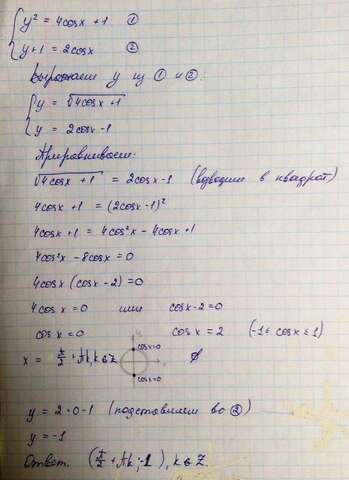 y² = 4cosx +1 ①
y+1 = 2cosx ②
Выражаем y из ① и ②:
y = √4cosx +1
y = 2cosx-1
Приравниваем:
√4cosx +1 = 2cosx-1 (возводим в квадрат)
4cosx +1 = (2cosx-1)²
4cosx+1 = 4cos²x - 4cosx +1
4cos²x - 8cosx = 0
4cosx (cosx-2) = 0
4cosx = 0 или cosx-2 = 0
cosx = 0 cosx = 2 (-1≤cosx≤1)
x = π/2 + πk, k∈Z cosx=0 cosx=0 ∅
y = 2·0-1 (подставляем во ②)
y = -1
Ответ. (π/2 + πk; -1), k∈Z.